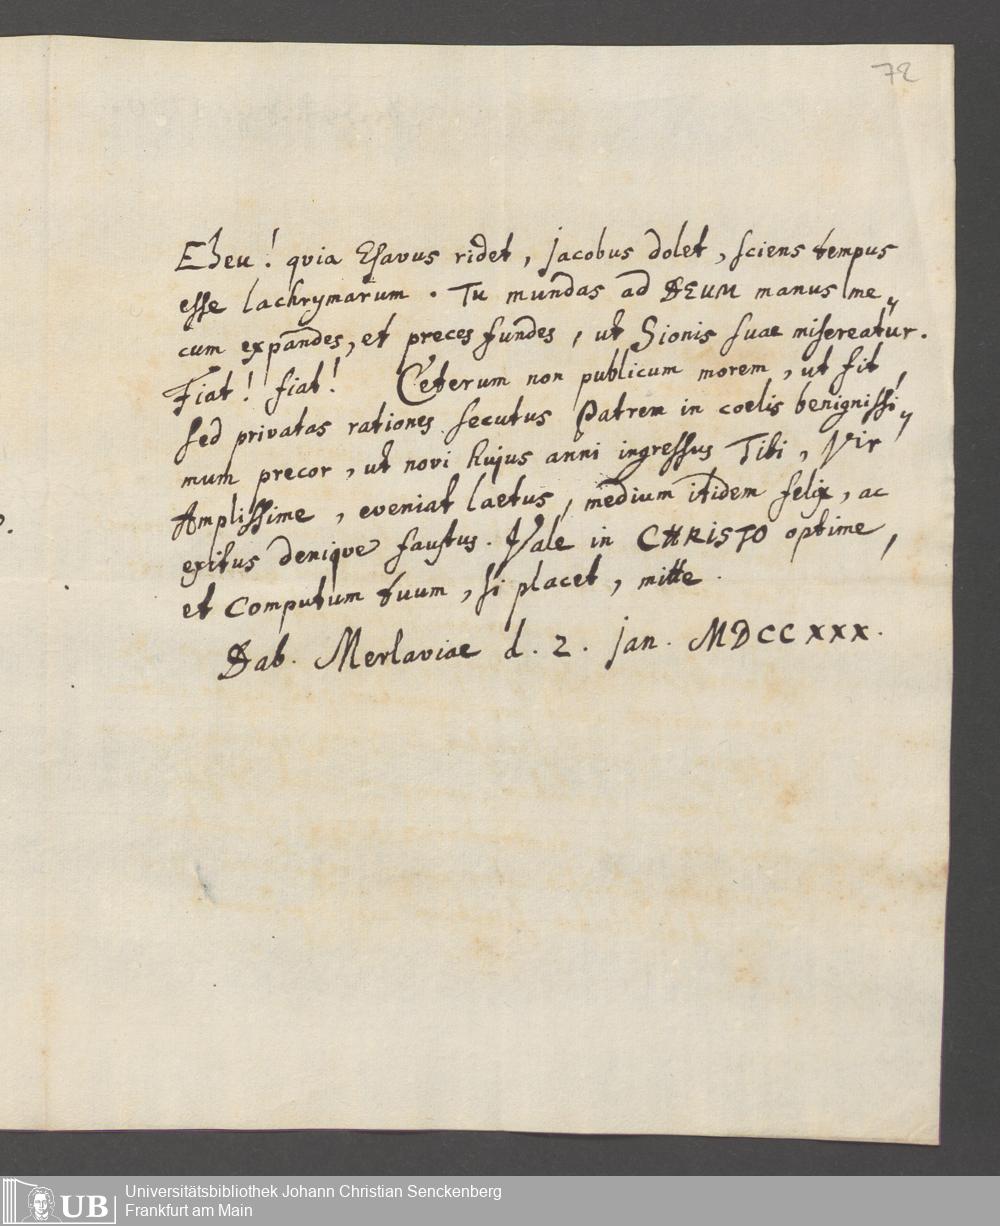 72
Eheu! qvia Esavus ridet, Jacobus dolet, sciens tempus
esse lachrymarum. Tu mundas ad DEUM manus me„
cum expandes, et preces fundes, ut Sionis suae misereatur.
Fiat! fiat! Ceterum non publicum morem, ut fit,
sed privatas rationes secutus Patrem in coelis benignissi„
mum precor, ut novi hujus anni ingressus Tibi, Vir
Amplissime, eveniat laetus, medium itidem felix, ac
exitus deniqve faustus. Vale in CHRISTO optime,
et Computum tuum, si placet, mitte.
Dab. Merlaviae d. 2. Jan. MDCCXXX.
UB
Universitätsbibliothek Johann Christian Senckenberg
Frankfurt am Main